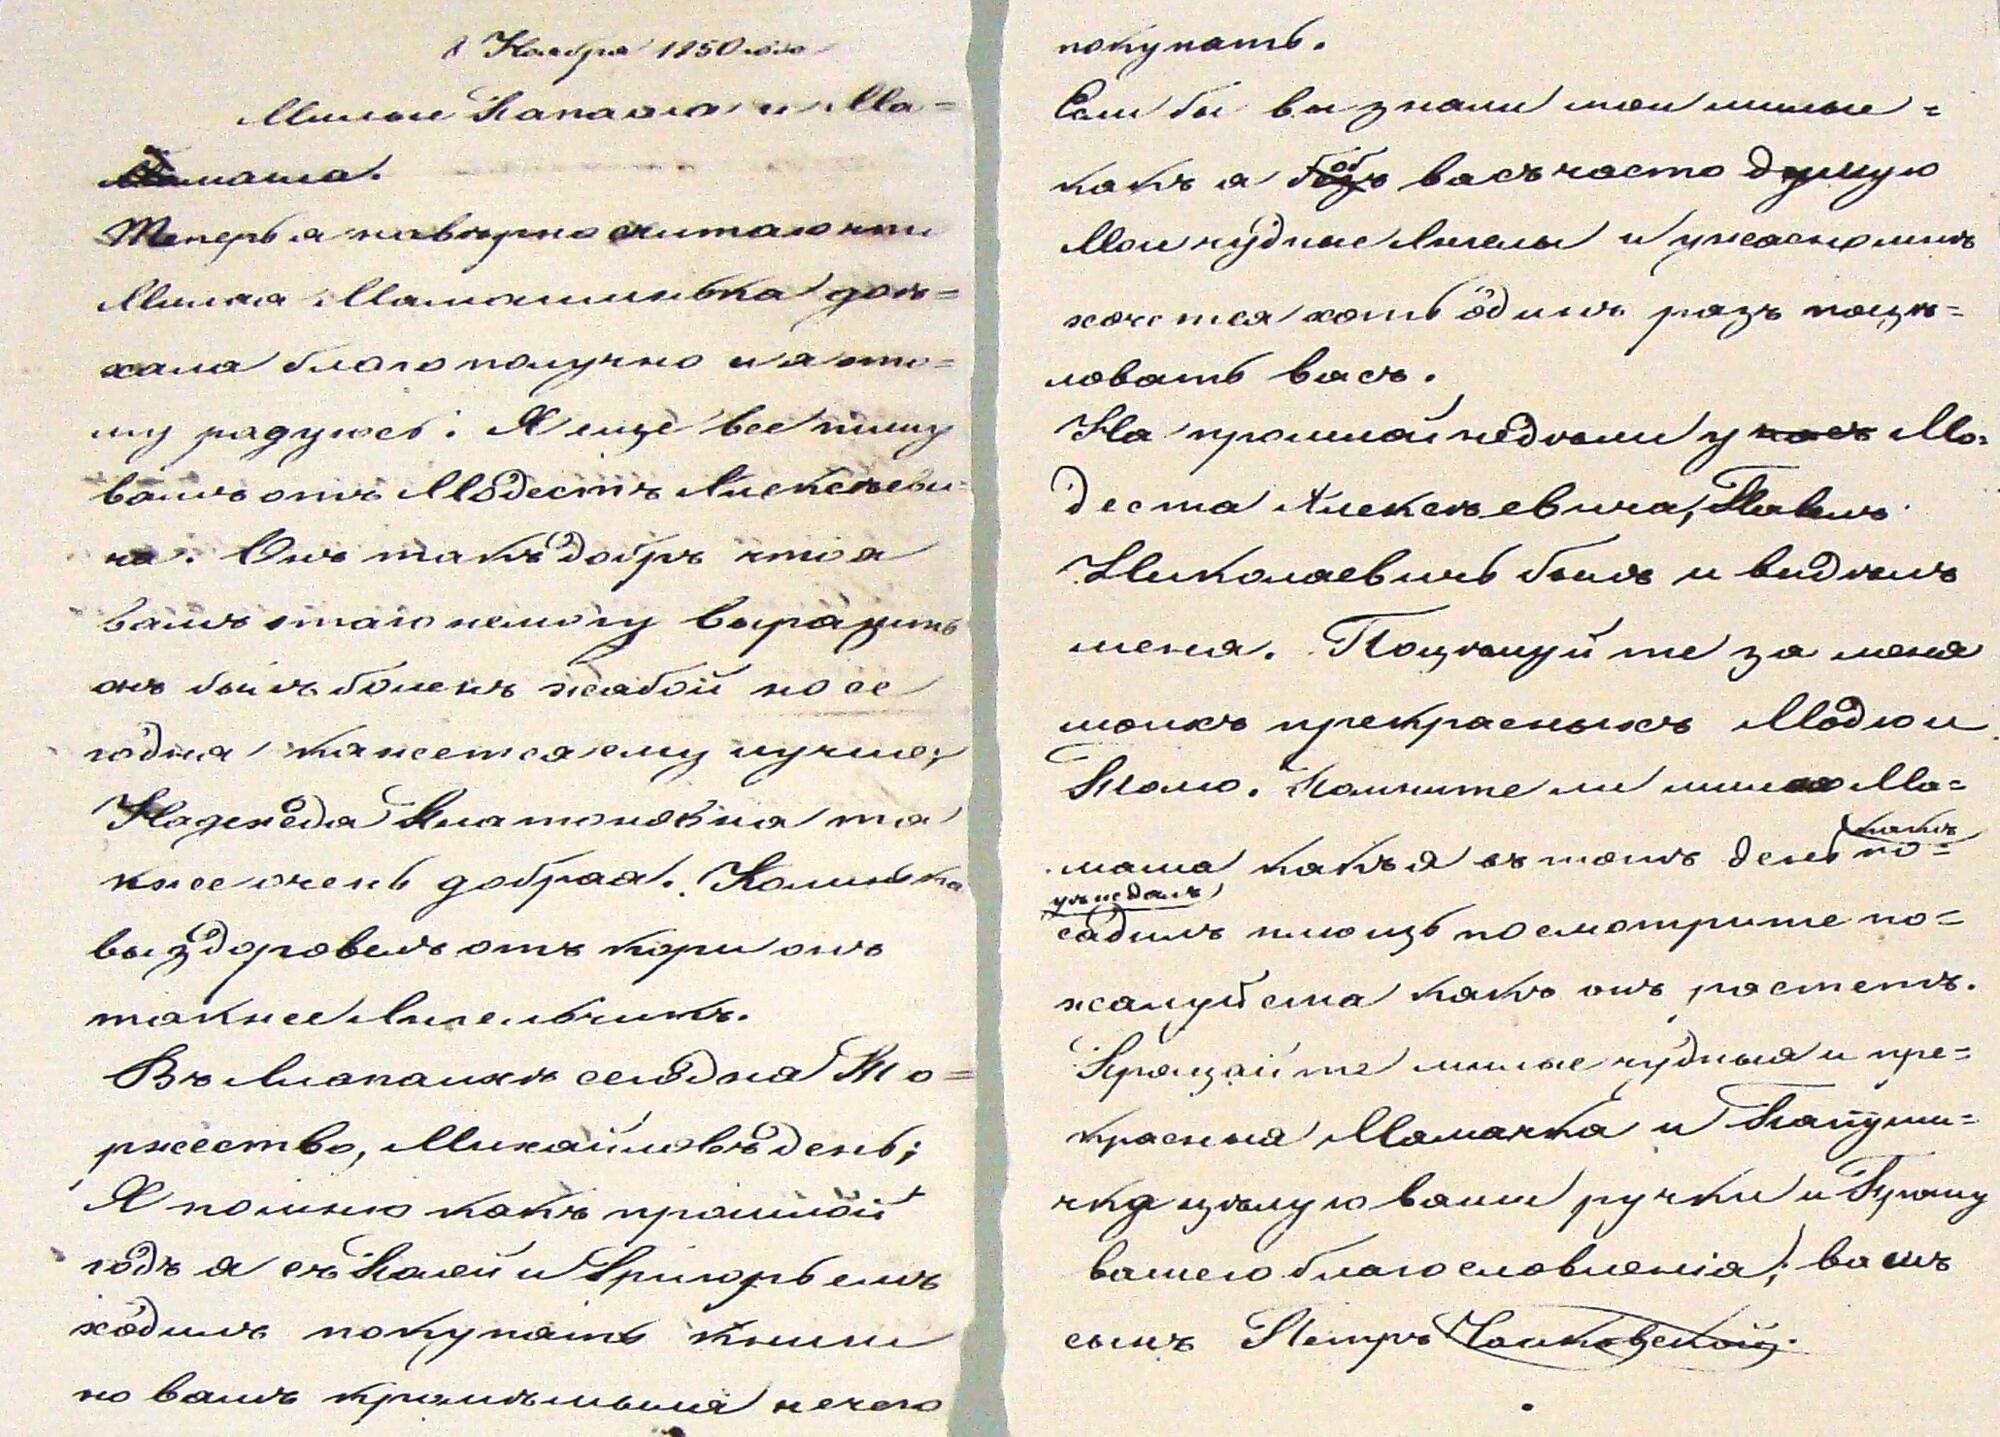 8 Ноября 1850 года
Милые Папаша и Ма=
маша.
Теперь я наверно считаю что
Милая Мамашинька доѣ=
хала благополучно и я это=
му радуюсь. Я еще все пишу
вамъ отъ Модестъ Алексѣеви=
ча. Онъ такъ добръ что я
вамъ этаго немогу выразить
онъ былъ боленъ жабой но се
годня кажется ему лучше;
Надежеда Платоновна та
кжее очень добрая. Колинька
выздоровелъ отъ кори онъ
такжее Ангельчикъ.
Въ Алопаихѣ сегодня То=
ржество, Михайловъ день;
Я помню какъ прошлой
годъ я съ Колей и Григорьемъ
ходилъ покупать книги
но вамъ нечего
покупать.
Если бы вы знали мои милые =
какъ я объ васъ часто думую
Мои чудные Ангелы и ужасно мнѣ
хочется хоть одинъ разъ поцѣ=
ловать васъ.
На прошлой недѣли у насъ Мо=
деста Алексѣевича, Павелъ
Николаевичь былъ и видѣлъ
меня. Поцѣлуйте за меня
моихъ прекрасныхъ Модю и
Толю. Помните ли милая Ма=
маша какъ я въ томъ день какъ
по=
уѣждалъ
садилъ плющь посмотрите по=
жалуйста какъ онъ ростетъ.
Прощайте милые чудныя и пре=
красныя Мамачка и Папуши=
чка цѣлую ваши ручки и Прошу
вашего благословленія; вашъ
сынъ Петръ Чайковской.